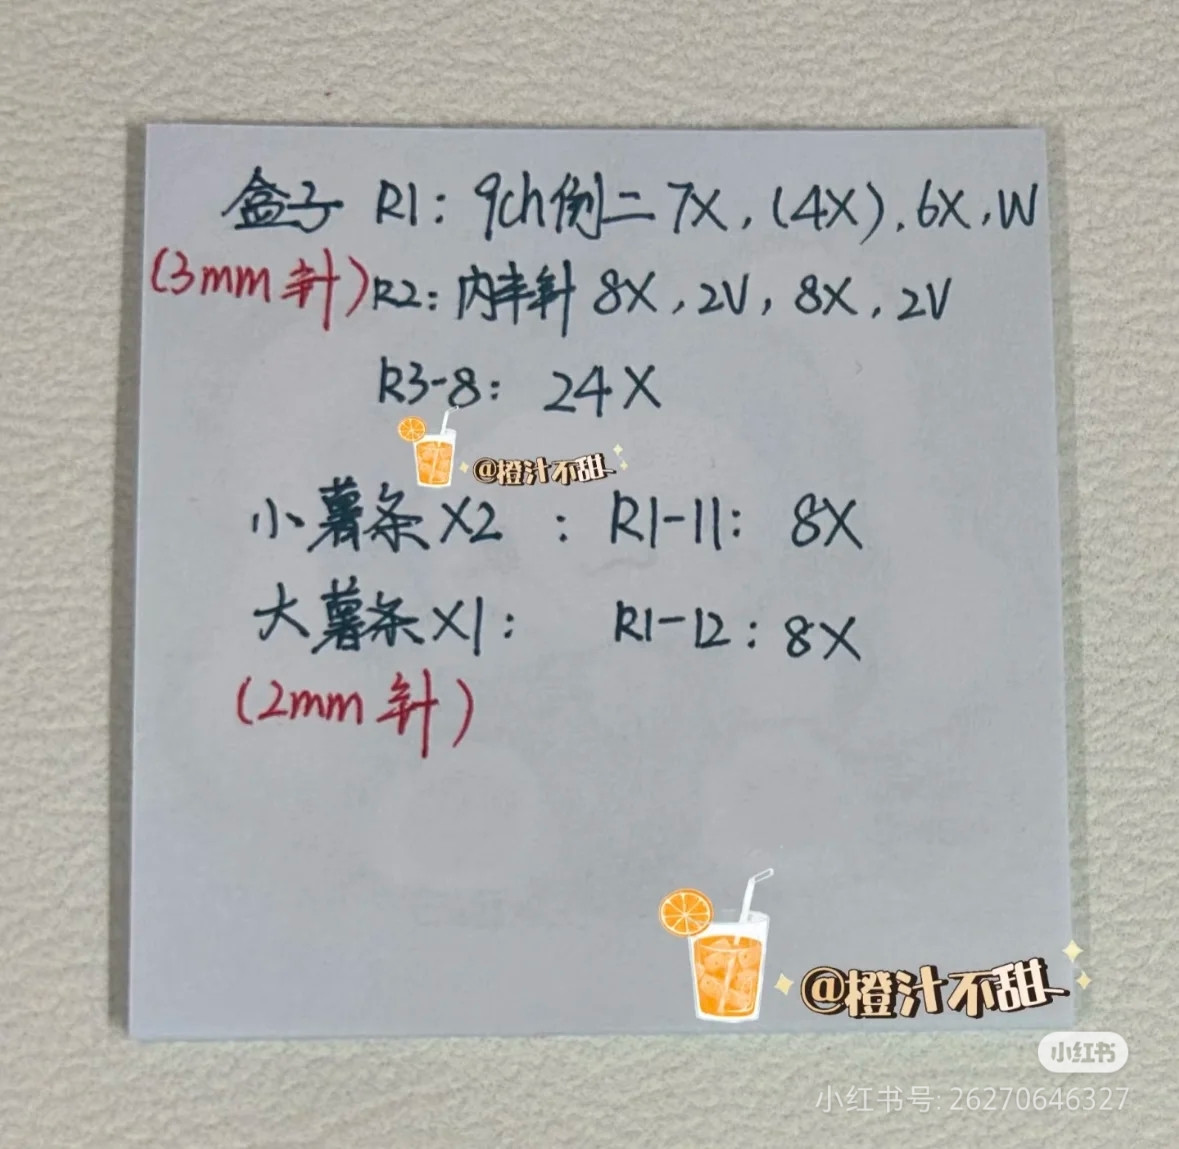 盒子 R1: 9ch倒二 7X, (4X), 6X, W
(3mm 针) R2: 内半针 8X, 2V, 8X, 2V
R3-8: 24X
@橙汁不甜
小薯条X2 : R1-11: 8X
大薯条X1: R1-12: 8X
(2mm 针)
@橙汁不甜
小红书
小红书号: 26270646327